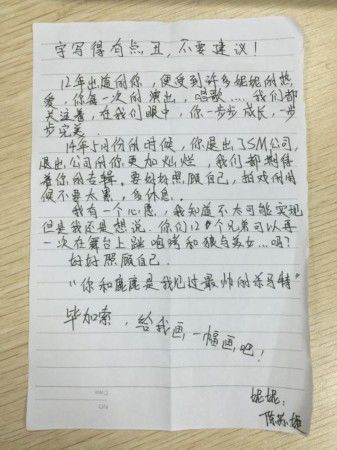 字写得有点丑，不要建议！
12年出道的你，便受到许多妮妮的热
爱，你每一次的演出，唱歌....我们都
关注着，在我们眼中，你一步步成长，一步
步完美。
14年5月份的时候，你退出了SM公司，
退出公司的你更加灿烂，我们都期待
着你的专辑。要好好照顾自己，拍戏的时
候不要太累，多休息。
我有一个心愿，我知道不太可能实现
但是我还是想说。你们12个兄弟可以再
一次在舞台上跳咆哮和狼与美女...吗？
好好照顾自己.
“你和鹿鹿是我见过最帅的杀马特”
毕加索，给我画一幅画吧！
妮妮：